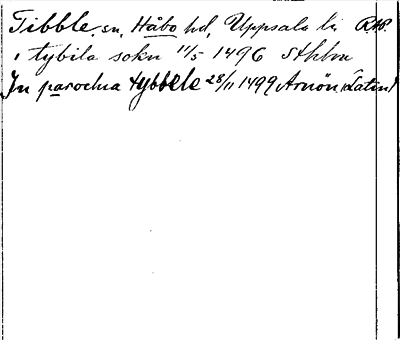 Tibble sn, Håbo hd, Uppsala län RAP.
i tybila sokn 11/5 1496 Sthlm
In parochia tybbele 28/11 1499 Arnön (Latin)